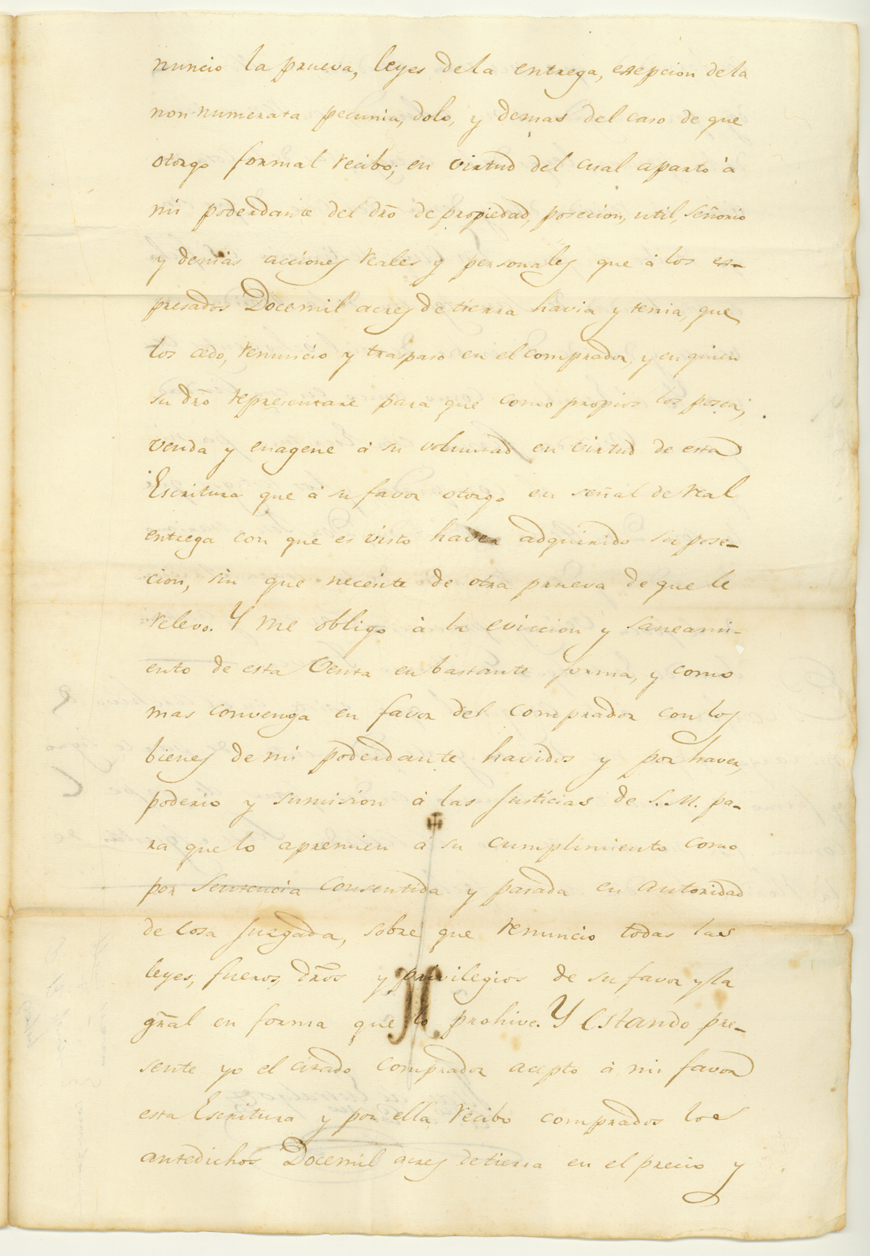 nuncio la prueva, leyes de la entrega, esepcion de la
non numerata pecunia, dolo, y demas del caso de que
otorgo formal recibo; en virtud del cual aparto à
mi poderdante del dro de propiedad, posecion, util, señorio
y demas acciones reales y personales que à los es-
presados Docemil acres de tierra havia y tenia, que
los cedo, renuncio y traspaso en el comprador, y en quien
su dro representare para que como propios los posea,
venda y enagene à su voluntad en virtud de esta
Escritura que à su favor otorgo en señal de real
entrega con que es visto haver adquirido su pose-
cion, sin que necesite de otra prueva de que le
relevo. Y me obligo à la eviccion y saneami-
ento de esta Venta en bastante forma, y como
mas convenga en favor del comprador con los
bienes de mi poderdante havidos y por haver,
poderio y sumision à las Justicias de S. M. pa-
ra que lo apremien à su cumplimiento como
por sentencia consentida y pasada en autoridad
de cosa juzgada, sobre que renuncio todas las
leyes, fueros, dros y privilegios de su favor y la
gral en forma que lo prohive. Y estando pre-
sente yo el citado comprador acepto à mi favor
esta Escritura y por ella recibo comprados los
antedichos Docemil acres de tierra en el precio y